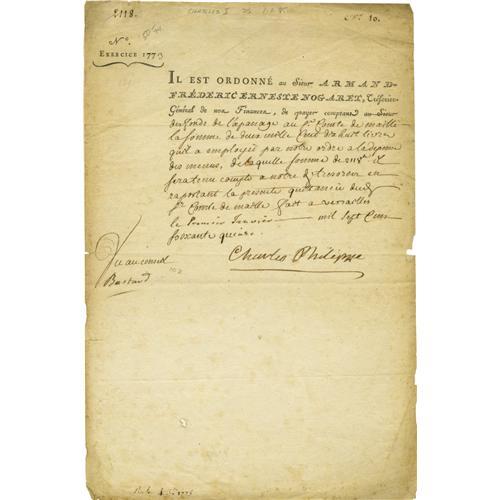 2118.
Nº 10.
Nº.
EXERCICE 1773
IL EST ORDONNÉ au Sieur ARMAND-
FRÉDÉRIC ERNESTE NOGARET, Trésorier-
Général de nos Finances, de payer comptant au Sieur
des fonds de l'apanage au Sr Comte de maillé
la somme de deux mille Cent dix huit livres
qu'il a employée par notre ordre a la depense
des menus, de laquelle somme de 2118# il
sera tenu compte a notre d. tresorier en
raportant la presente quittancée dud.
Sr Comte de maillé fait a versailles
le Premier Janvier mil Sept Cent
soixante quinze.
Charles Philippe
Vu au conseil
Bastard